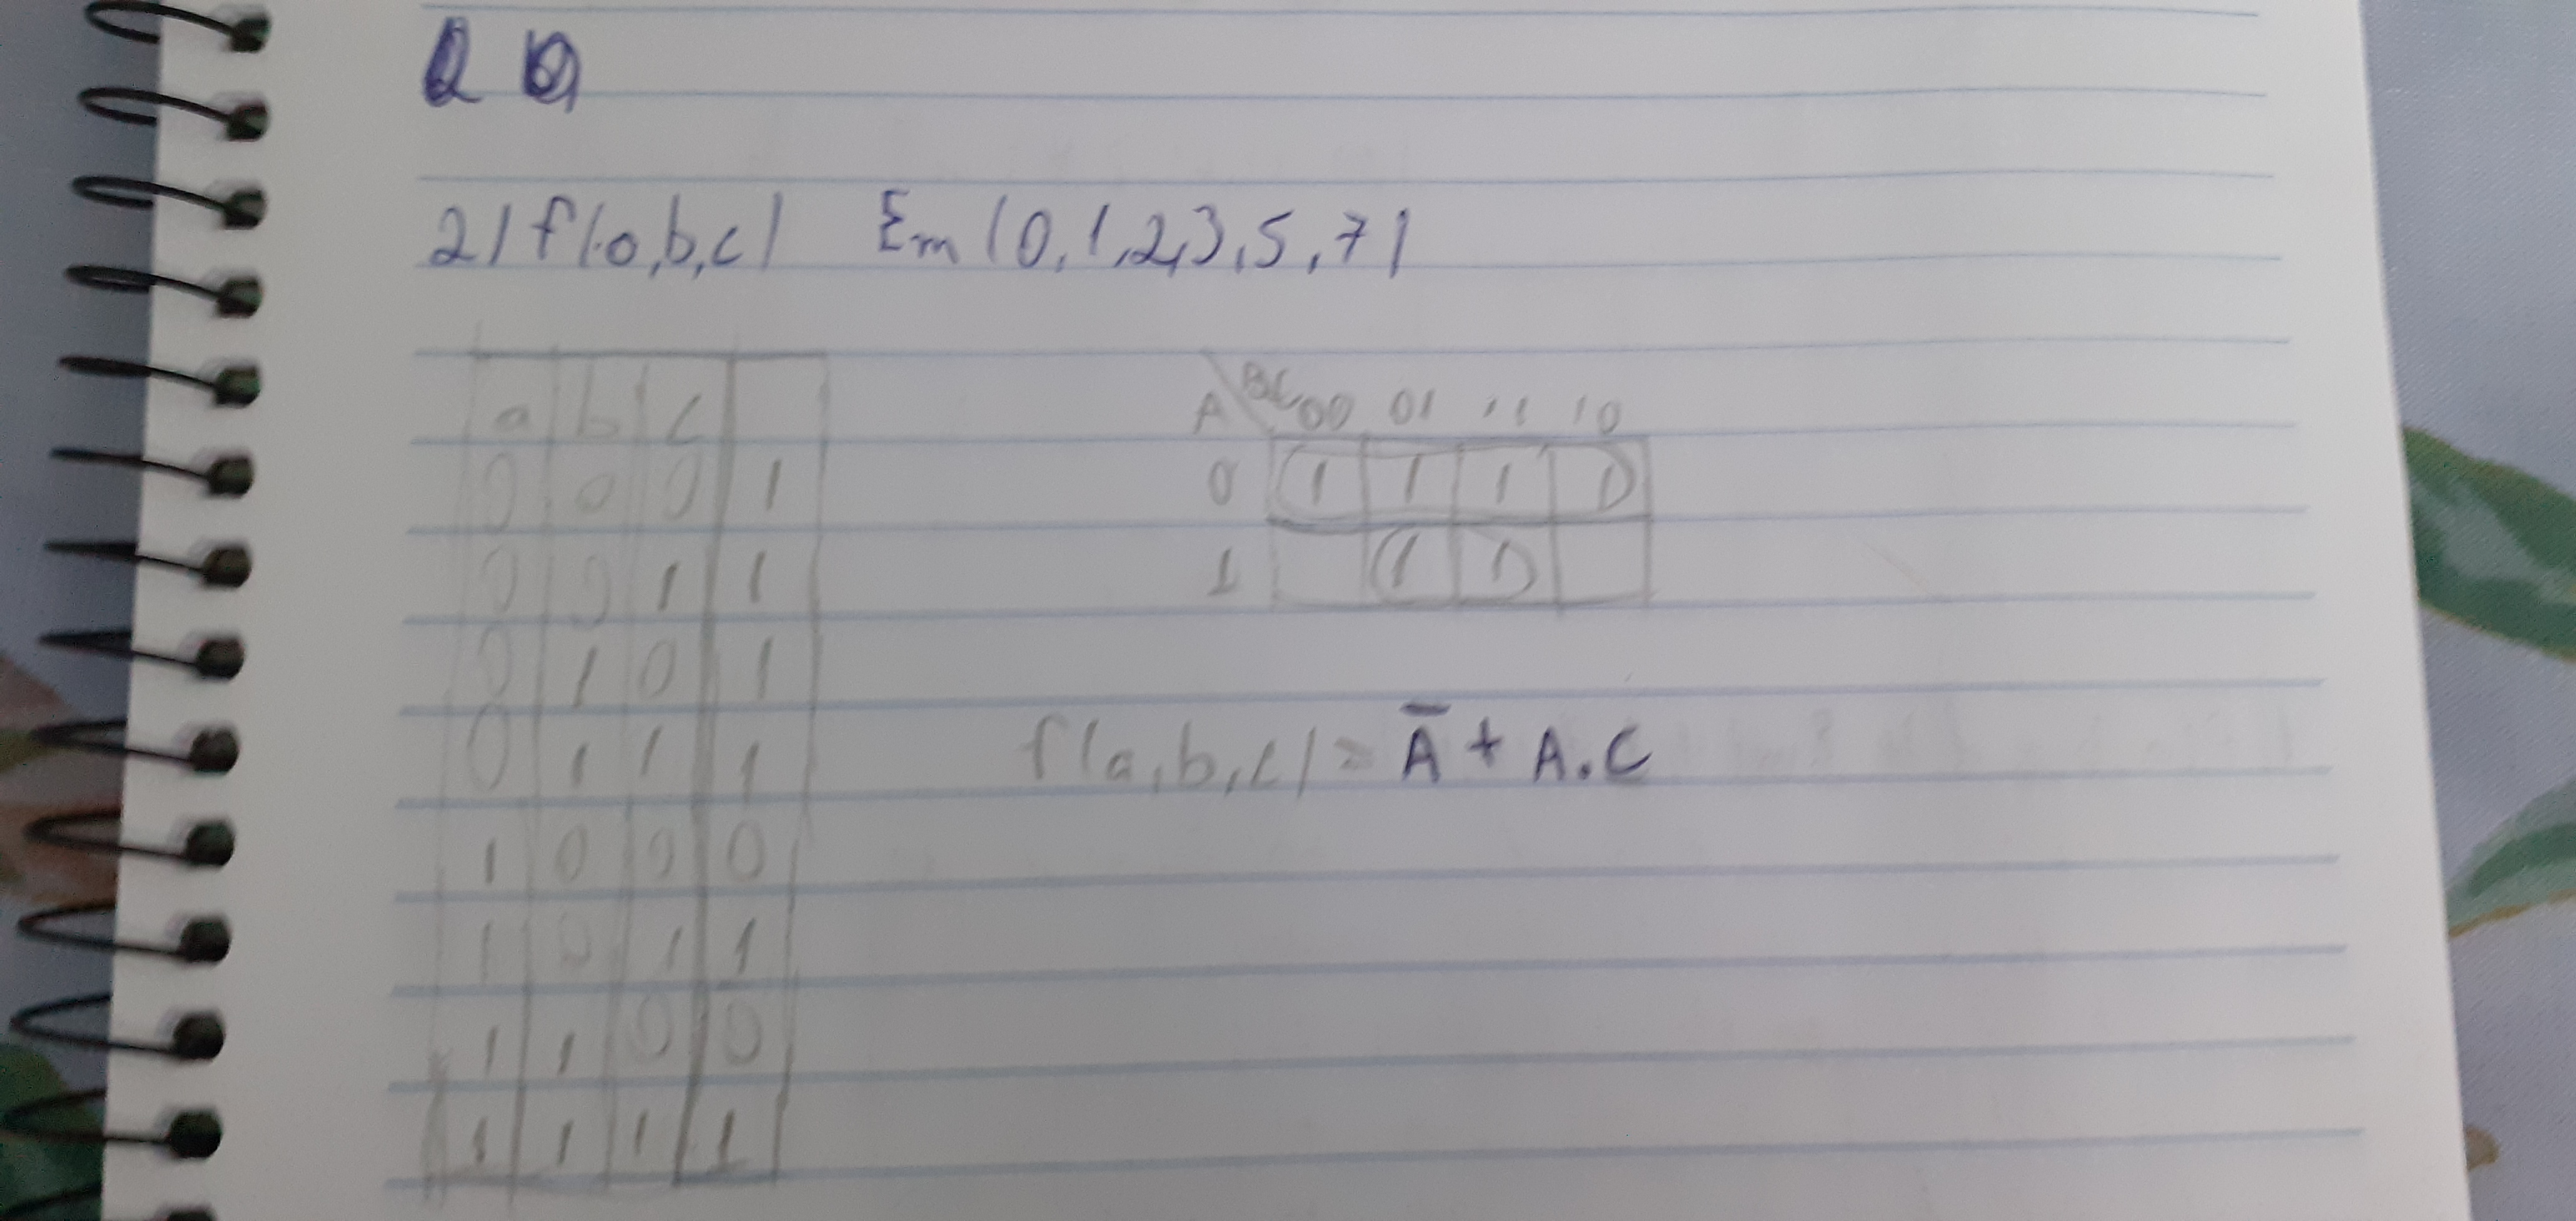 2) f(a,b,c) Σm (0,1,2,3,5,7)
a b c
0 0 0 1
0 0 1 1
0 1 0 1
0 1 1 1
1 0 0 0
1 0 1 1
1 1 0 0
1 1 1 1
A BC 00 01 11 10
0 1 1 1 1
1 1 1
f(a,b,c) = A̅ + A.C